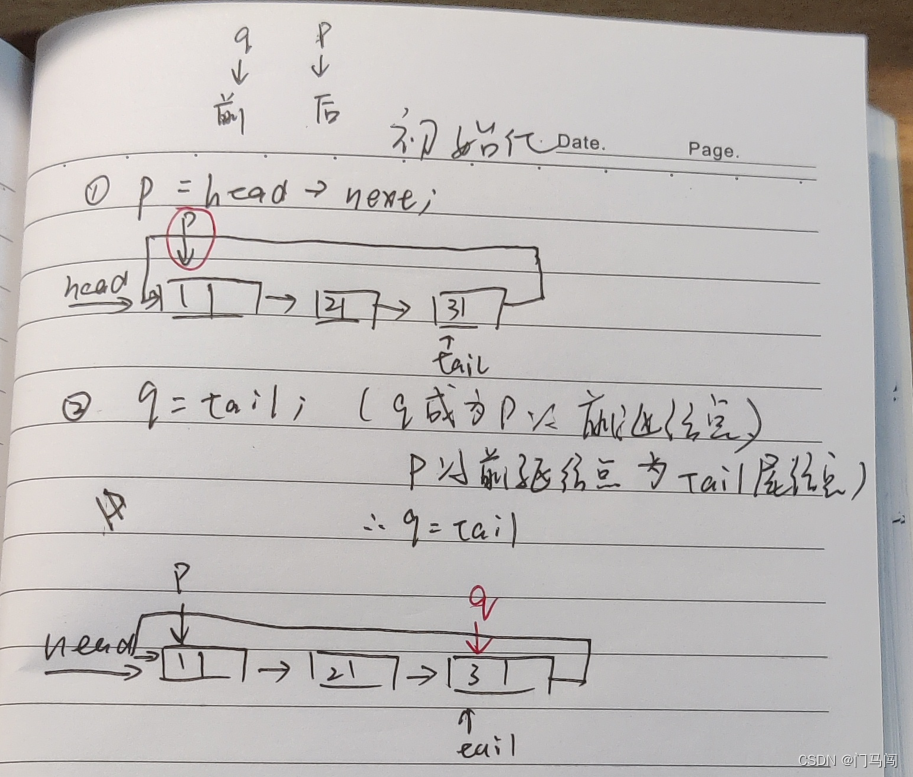 q P
前 后
初始化 Date. Page.
① P = head → next;
P
head 1 2 3
tail
② q = tail; (q成为P以前驱结点)
P以前驱结点为Tail尾结点)
∴ q = tail
P q
head 1 2 3
tail
CSDN @门马闯